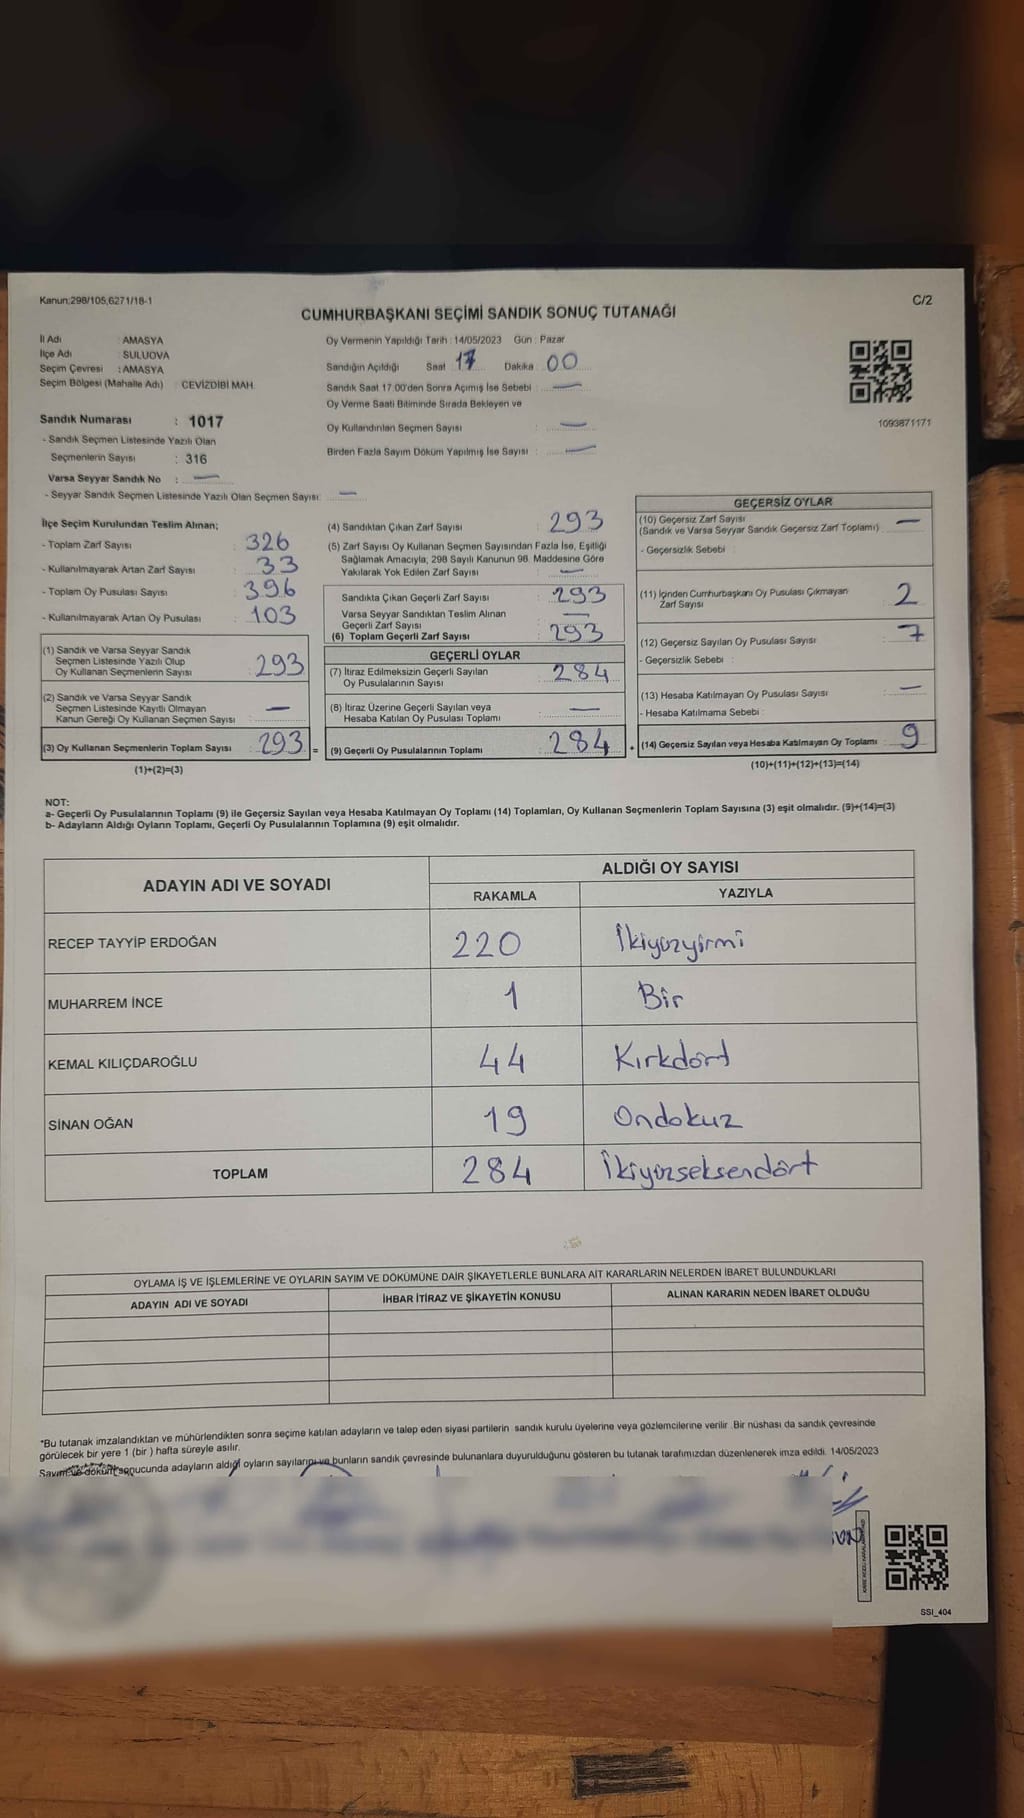 Kanun:298/105,6271/18-1
C/2
CUMHURBAŞKANI SEÇİMİ SANDIK SONUÇ TUTANAĞI
İl Adı : AMASYA
İlçe Adı : SULUOVA
Seçim Çevresi : AMASYA
Seçim Bölgesi (Mahalle Adı) : CEVİZDİBİ MAH.
Oy Vermenin Yapıldığı Tarih : 14/05/2023 Gün : Pazar
Sandığın Açıldığı Saat 17 Dakika 00
Sandık Saat 17.00'den Sonra Açımış İse Sebebi : —
Oy Verme Saati Bitiminde Sırada Bekleyen ve
Oy Kullandırılan Seçmen Sayısı : —
Birden Fazla Sayım Döküm Yapılmış İse Sayısı : —
1093871171
Sandık Numarası : 1017
- Sandık Seçmen Listesinde Yazılı Olan
Seçmenlerin Sayısı : 316
Varsa Seyyar Sandık No : —
- Seyyar Sandık Seçmen Listesinde Yazılı Olan Seçmen Sayısı: —
İlçe Seçim Kurulundan Teslim Alınan;
- Toplam Zarf Sayısı : 326
- Kullanılmayarak Artan Zarf Sayısı : 33
- Toplam Oy Pusulası Sayısı : 396
- Kullanılmayarak Artan Oy Pusulası : 103
(1) Sandık ve Varsa Seyyar Sandık
Seçmen Listesinde Yazılı Olup
Oy Kullanan Seçmenlerin Sayısı : 293
(2) Sandık ve Varsa Seyyar Sandık
Seçmen Listesinde Kayıtlı Olmayan
Kanun Gereği Oy Kullanan Seçmen Sayısı : —
(3) Oy Kullanan Seçmenlerin Toplam Sayısı : 293 =
(1)+(2)=(3)
(4) Sandıktan Çıkan Zarf Sayısı : 293
(5) Zarf Sayısı Oy Kullanan Seçmen Sayısından Fazla İse, Eşitliği
Sağlamak Amacıyla, 298 Sayılı Kanunun 98. Maddesine Göre
Yakılarak Yok Edilen Zarf Sayısı : —
Sandıkta Çıkan Geçerli Zarf Sayısı : 293
Varsa Seyyar Sandıktan Teslim Alınan
Geçerli Zarf Sayısı : —
(6) Toplam Geçerli Zarf Sayısı : 293
GEÇERLİ OYLAR
(7) İtiraz Edilmeksizin Geçerli Sayılan
Oy Pusulalarının Sayısı : 284
(8) İtiraz Üzerine Geçerli Sayılan veya
Hesaba Katılan Oy Pusulası Toplamı : —
(9) Geçerli Oy Pusulalarının Toplamı : 284
GEÇERSİZ OYLAR
(10) Geçersiz Zarf Sayısı
(Sandık ve Varsa Seyyar Sandık Geçersiz Zarf Toplamı) : —
- Geçersizlik Sebebi :
(11) İçinden Cumhurbaşkanı Oy Pusulası Çıkmayan
Zarf Sayısı : 2
(12) Geçersiz Sayılan Oy Pusulası Sayısı : 7
- Geçersizlik Sebebi :
(13) Hesaba Katılmayan Oy Pusulası Sayısı : —
- Hesaba Katılmama Sebebi :
(14) Geçersiz Sayılan veya Hesaba Katılmayan Oy Toplamı : 9
(10)+(11)+(12)+(13)=(14)
NOT:
a- Geçerli Oy Pusulalarının Toplamı (9) ile Geçersiz Sayılan veya Hesaba Katılmayan Oy Toplamı (14) Toplamları, Oy Kullanan Seçmenlerin Toplam Sayısına (3) eşit olmalıdır. (9)+(14)=(3)
b- Adayların Aldığı Oyların Toplamı, Geçerli Oy Pusulalarının Toplamına (9) eşit olmalıdır.
ADAYIN ADI VE SOYADI ALDIĞI OY SAYISI
RAKAMLA YAZIYLA
RECEP TAYYİP ERDOĞAN 220 İkiyüzyirmi
MUHARREM İNCE 1 Bir
KEMAL KILIÇDAROĞLU 44 Kırkdört
SİNAN OĞAN 19 Ondokuz
TOPLAM 284 İkiyüzseksendört
OYLAMA İŞ VE İŞLEMLERİNE VE OYLARIN SAYIM VE DÖKÜMÜNE DAİR ŞİKAYETLERLE BUNLARA AİT KARARLARIN NELERDEN İBARET BULUNDUKLARI
ADAYIN ADI VE SOYADI İHBAR İTİRAZ VE ŞİKAYETİN KONUSU ALINAN KARARIN NEDEN İBARET OLDUĞU
*Bu tutanak imzalandıktan ve mühürlendikten sonra seçime katılan adayların ve talep eden siyasi partilerin sandık kurulu üyelerine veya gözlemcilerine verilir. Bir nüshası da sandık çevresinde
görülecek bir yere 1 (bir ) hafta süreyle asılır.
Sayım ve döküm sonucunda adayların aldığı oyların sayılarını ve bunların sandık çevresinde bulunanlara duyurulduğunu gösteren bu tutanak tarafımızdan düzenlenerek imza edildi. 14/05/2023
SSI_404